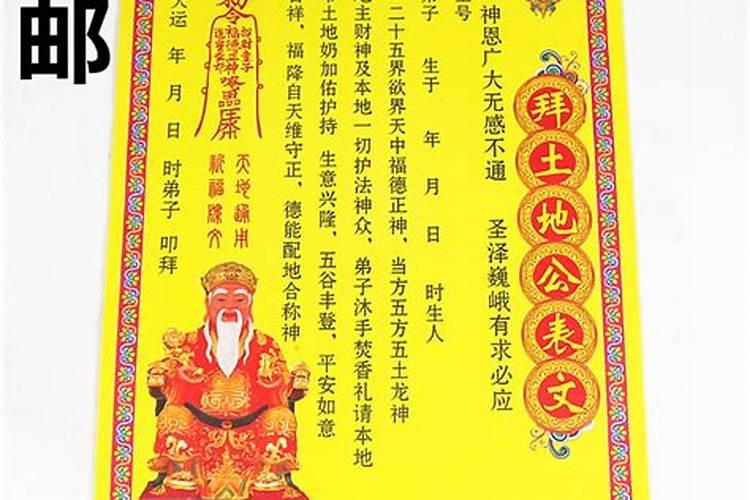 拜土地公表文
神恩广大无感不通 圣泽巍峨有求必应
弟子 生于 年 月 日 时生人
二十五界欲界天中福德正神,当方五方五土龙神
地主财神及本地一切护法神众,弟子沐手焚香礼请本地
土地奶加佑护持 生意兴隆,五谷丰登,平安如意
吉祥,福降自天维守正,德能配地合称神。
天运 年 月 日 时弟子 叩拜
邮